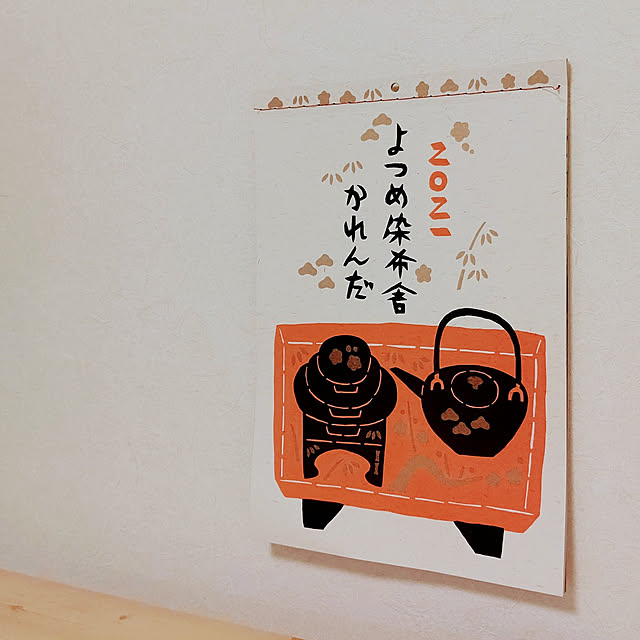 2021
よつめ染布舎
かれんだ